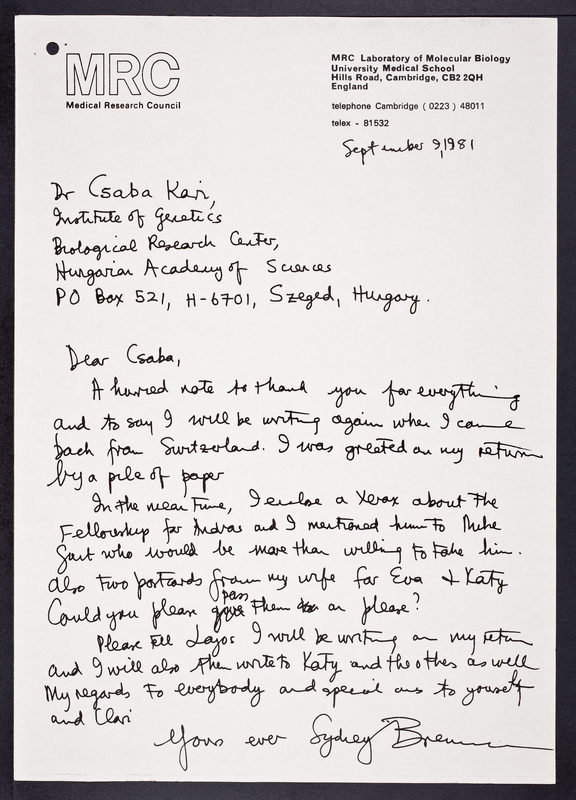 MRC
Medical Research Council
MRC Laboratory of Molecular Biology
University Medical School
Hills Road, Cambridge, CB2 2QH
England
telephone Cambridge ( 0223 ) 48011
telex - 81532
September 9, 1981
Dr Csaba Kari,
Institute of Genetics
Biological Research Center,
Hungarian Academy of Sciences
PO Box 521, H-6701, Szeged, Hungary.
Dear Csaba,
A hurried note to thank you for everything
and to say I will be writing again when I come
back from Switzerland. I was greeted on my return
by a pile of paper
In the mean time, I enclose a Xerox about the
Fellowship for Andras and I mentioned him to Mike
Gait who would be more than willing to take him.
Also two postcards from my wife for Eva & Katy
Could you please pass them on please?
Please tell Lajos I will be writing on my return
and I will also then write to Katy and the others as well
My regards to everybody and special ones to yourself
and Clari
Yours ever Sydney Brenner